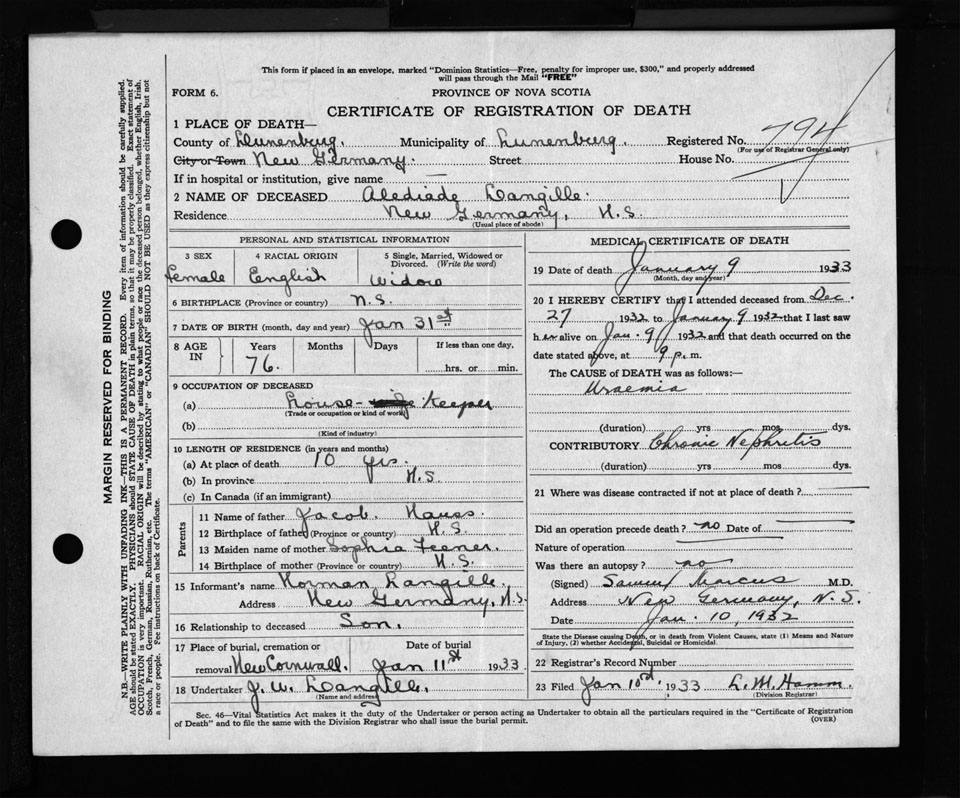 This form if placed in an envelope, marked "Dominion Statistics—Free, penalty for improper use, $300," and properly addressed
will pass through the Mail "FREE"
FORM 6.
PROVINCE OF NOVA SCOTIA
CERTIFICATE OF REGISTRATION OF DEATH
1 PLACE OF DEATH—
County of Lunenburg. Municipality of Lunenburg. Registered No. 794
(For use of Registrar General only)
City or Town New Germany. Street House No.
If in hospital or institution, give name —
2 NAME OF DECEASED Alediade Langille.
Residence New Germany, N.S.
(Usual place of abode)
MARGIN RESERVED FOR BINDING
N.B.—WRITE PLAINLY WITH UNFADING INK—THIS IS A PERMANENT RECORD. Every item of information should be carefully supplied.
AGE should be stated EXACTLY. PHYSICIANS should STATE CAUSE OF DEATH in plain terms, so that it may be properly classified. Exact statement of
OCCUPATION is very important. RACIAL ORIGIN will be described by stating to what people or race the deceased person belonged, whether English, Irish,
Scotch, French, German, Russian, Ruthenian, etc. The terms "AMERICAN" or "CANADIAN" SHOULD NOT BE USED as they express citizenship but not
a race or people. See instructions on back of Certificate.
PERSONAL AND STATISTICAL INFORMATION
3 SEX 4 RACIAL ORIGIN 5 Single, Married, Widowed or
Divorced. (Write the word)
Female English Widow
6 BIRTHPLACE (Province or country) N.S.
7 DATE OF BIRTH (month, day and year) Jan 31st
8 AGE IN Years Months Days If less than one day,
76. hrs. or min.
9 OCCUPATION OF DECEASED
(a) House- Keeper
(Trade or occupation or kind of work)
(b)
(Kind of industry)
10 LENGTH OF RESIDENCE (in years and months)
(a) At place of death 10 yrs.
(b) In province N.S.
(c) In Canada (if an immigrant)
Parents
11 Name of father Jacob. Hauss
12 Birthplace of father (Province or country) N.S.
13 Maiden name of mother Sophia Feener.
14 Birthplace of mother (Province or country) N.S.
15 Informant's name Norman Langille.
Address New Germany, N.S.
16 Relationship to deceased Son.
17 Place of burial, cremation or Date of burial
removal New Cornwall. Jan 11st 1933
18 Undertaker J. W. Langille.
(Name and address)
MEDICAL CERTIFICATE OF DEATH
19 Date of death January 9 1933
(Month, day and year)
20 I HEREBY CERTIFY that I attended deceased from Dec.
27 1932 to January 9 1932 that I last saw
her alive on Jan. 9 1932 and that death occurred on the
date stated above, at 9 p.m.
The CAUSE of DEATH was as follows:—
Uraemia
(duration) yrs mos dys.
CONTRIBUTORY Chronic Nephritis
(duration) yrs mos dys.
21 Where was disease contracted if not at place of death?
Did an operation precede death? no Date of
Nature of operation
Was there an autopsy? no
(Signed) Samuel Marcus M.D.
Address New Germany, N.S.
Date Jan. 10, 1932
State the Disease causing Death, or in death from Violent Causes, state (1) Means and Nature
of Injury, (2) whether Accidental, Suicidal or Homicidal.
22 Registrar's Record Number
23 Filed Jan 10th. 1933 L. M. Hamm.
(Division Registrar)
Sec. 46—Vital Statistics Act makes it the duty of the Undertaker or person acting as Undertaker to obtain all the particulars required in the "Certificate of Registration
of Death" and to file the same with the Division Registrar who shall issue the burial permit.
(OVER)